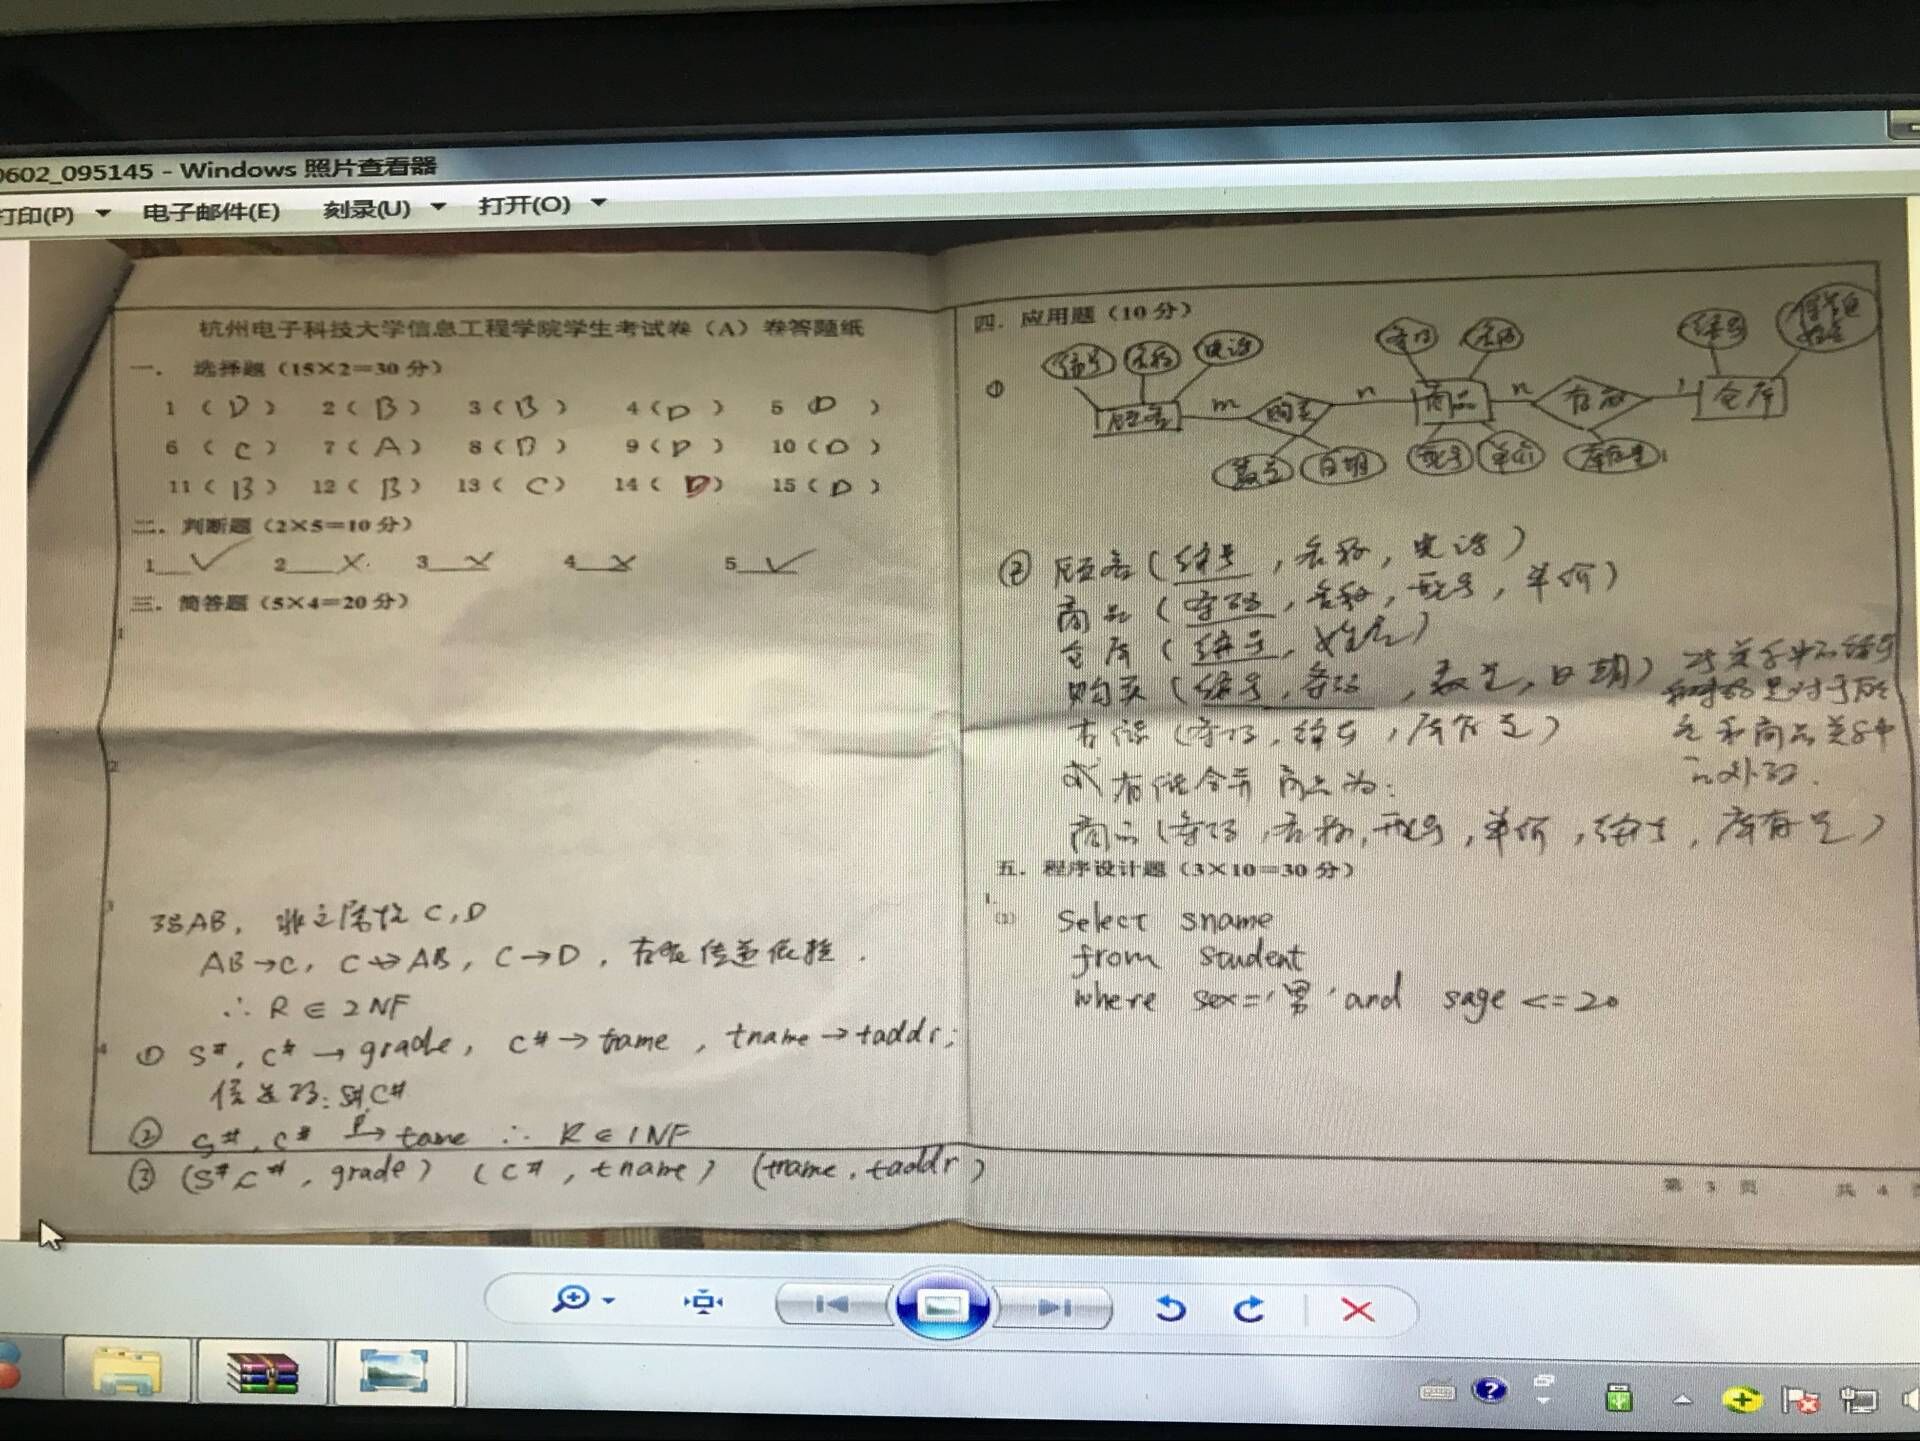 0602_095145 - Windows 照片查看器
打印(P) 电子邮件(E) 刻录(U) 打开(O)
杭州电子科技大学信息工程学院学生考试卷（A）卷答题纸
一. 选择题（15×2=30 分）
1 ( D ) 2 ( B ) 3 ( B ) 4 ( D ) 5 ( D )
6 ( C ) 7 ( A ) 8 ( B ) 9 ( D ) 10 ( D )
11 ( B ) 12 ( B ) 13 ( C ) 14 ( D ) 15 ( D )
二. 判断题（2×5=10 分）
1 ✓ 2 × 3 × 4 × 5 ✓
三. 简答题（5×4=20 分）
1
2
3
码AB, 非主属性 C, D
AB→C, C↛AB, C→D, 传递依赖.
∴ R ∈ 2NF
4
① S#, C# → grade, C# → tname, tname → taddr;
码: S#, C#
② S#, C# P→ tname ∴ R ∈ 1NF
③ (S#, C#, grade) (C#, tname) (tname, taddr)
四. 应用题（10 分）
①
编号 名称 电话
顾客 m 购买 n 商品 n 存放 1 仓库
数量 日期 型号 单价 库存量
名称 编号
② 顾客 ( 编号, 名称, 电话 )
商品 ( 名称, 型号, 单价 )
仓库 ( 编号, )
购买 ( 编号, 数量, 日期 )
( 编号, 库存量 )
或 合并 商品为:
商品 ( 名称, 型号, 单价, 编号, 库存量 )
五. 程序设计题（3×10=30 分）
1.
(1) Select sname
from student
where sex='男' and sage <=20
第 3 页 共 4 页